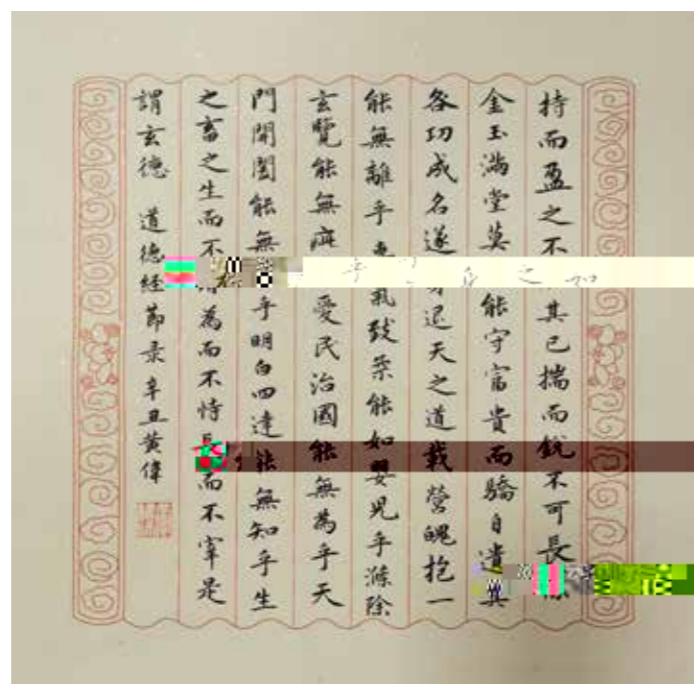 持而盈之不其已揣而銳不可長
金玉滿堂莫能守富貴而驕自遺其
各功成名遂身退天之道載營魄抱一
能無離乎氣致柔能如嬰兒乎滌除
玄覽能無疵愛民治國能無為乎天
門開闔能無乎明白四達能無知乎生
之畜之生而不為而不恃長而不宰是
謂玄德 道德經節录辛丑黃偉